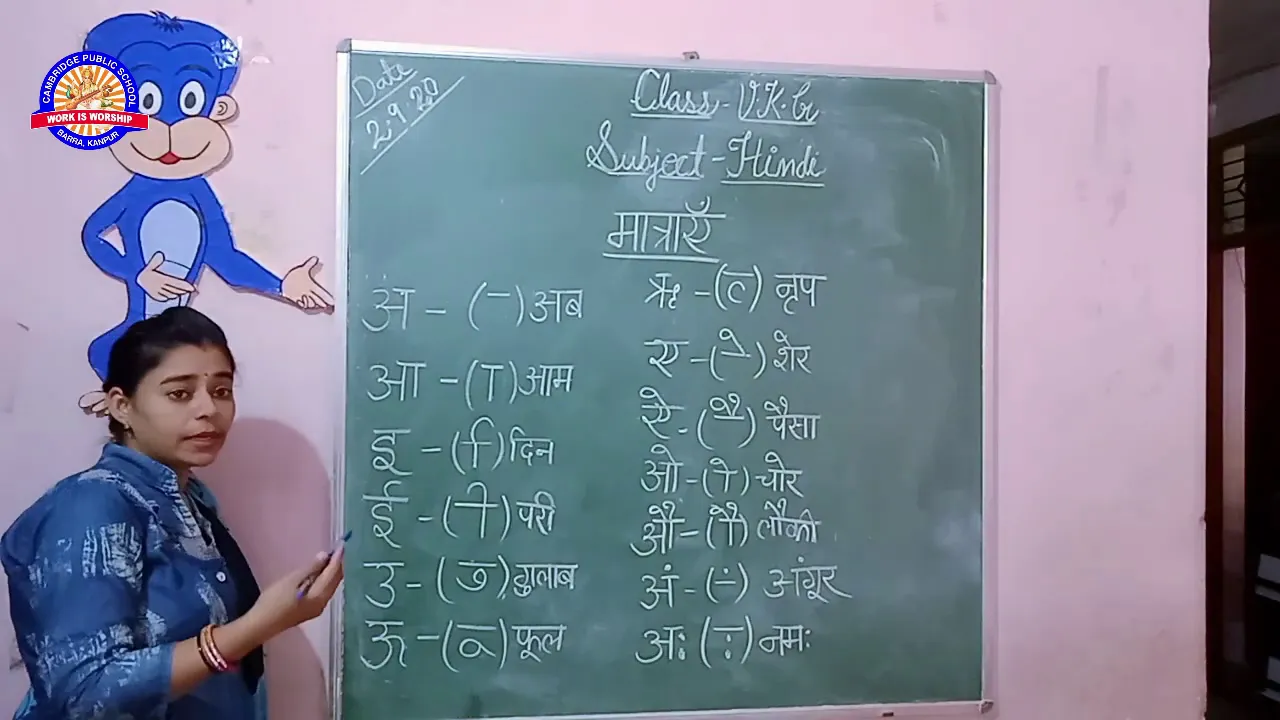 CAMBRIDGE PUBLIC SCHOOL
WORK IS WORSHIP
BARRA, KANPUR
Date
2.9.20
Class - U.K.G
Subject - Hindi
मात्राएँ
अ - (–) अब
आ - (ा) आम
इ - (ि) दिन
ई - (ी) परी
उ - (ु) गुलाब
ऊ - (ू) फूल
ऋ - (ृ) नृप
ए - (े) शेर
ऐ - (ै) पैसा
ओ - (ो) चोर
औ - (ौ) लौकी
अं - (ं) अंगूर
अः (ः) नमः